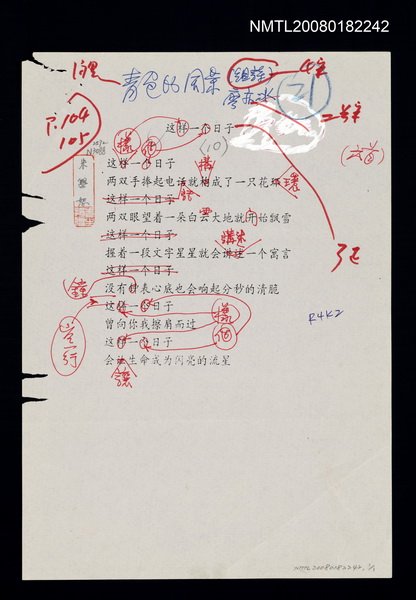 NMTL20080182242
青色的風景
(組詩)
廖亦冰
21
P.104
105
这样一个日子
樣 個
(10)
这样一个日子
两双手捧起电话就构成了一只花环
構
環
話
这样一个日子
两双眼望着一朵白云大地就开始飘雪
雲
开
这样一个日子
握着一段文字星星就会讲述一个寓言
講
这样一个日子
没有钟表心底也会响起分秒的清脆
鐘
这样一个日子
曾向你我擦肩而过
樣
這样一个日子
個
空一行
会让生命成为闪亮的流星
讓
R4K2
NMTL20080182242